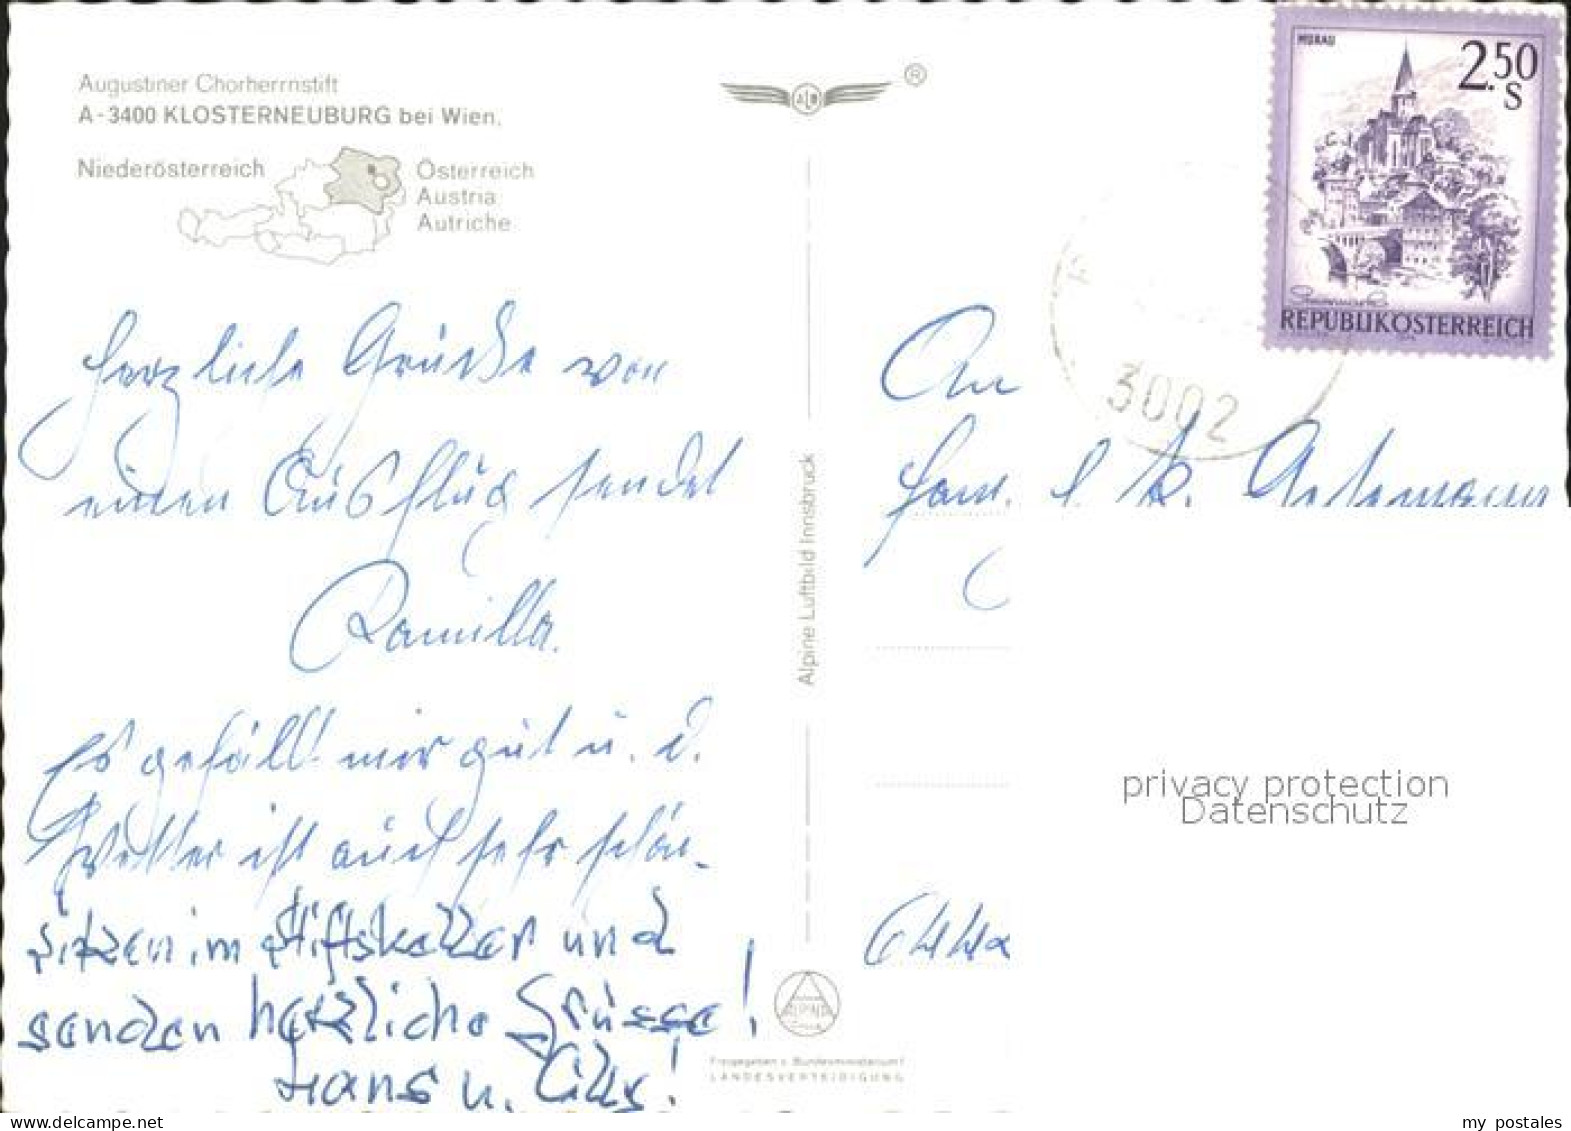 Augustiner Chorherrnstift
A-3400 KLOSTERNEUBURG bei Wien.
Niederösterreich
Österreich
Austria
Autriche
Herzliche Grüße von
einen Ausflug sendet
Kamilla.
Es gefällt mir gut u. d.
Wetter ist auch sehr schön.
sitzen im Stiftskeller und
senden herzliche Grüsse!
Hans u. Cilly!
Alpine Luftbild Innsbruck
®
ALPINA
Freigegeben v. Bundesministerium f.
LANDESVERTEIDIGUNG
MURAU
2.50
S
REPUBLIK ÖSTERREICH
3002
An
Fam.
privacy protection
Datenschutz
my postales